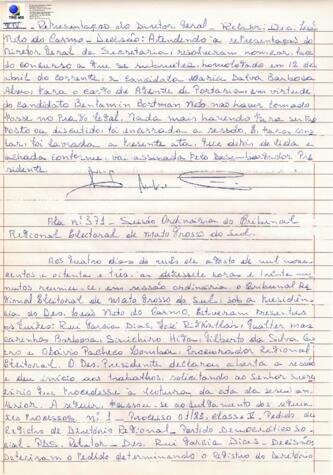 XIV - Representação do Diretor Geral - Relator: Des. Leão
Neto do Carmo - Decisão: Atendendo a representação do
Diretor Geral de Secretaria, resolveram nomear, face
do concurso a que se submeteu, homologado em 12 de
abril do corrente, a candidata Maria Dalva Barbosa
Alves, para o cargo de Agente de Portaria, em virtude
do candidato Benjamin Bortman Neto não haver tomado
posse no prazo legal. Nada mais havendo para ser pro
posto ou discutido foi encerrada a sessão. E, para cons
tar, foi lavrada a presente ata, que depois de lida e
achada conforme, vai assinada pelo Desembargador Pre
sidente.
Ata nº 371 - Sessão Ordinária do Tribunal
Regional Eleitoral de Mato Grosso do Sul.
Aos quatro dias do mês de agosto de mil nove
centos e oitenta e três, às dezessete horas e trinta mi
nutos reuniu-se, em sessão ordinária, o Tribunal Re
gional Eleitoral de Mato Grosso do Sul, sob a Presidên
cia do Des. Leão Neto do Carmo. Estiveram presentes
os Juízes: Rui Garcia Dias, José Rizkallah, Gualter Mas
carenhas Barbosa, Sinichiro Hitam, Gilberto da Silva Cas
tro e Otávio Pacheco Lomba, Procurador Regional
Eleitoral. O Des. Presidente declarou aberta a sessão
e deu início aos trabalhos, solicitando ao Senhor Secre
tário que procedesse à leitura da ata da sessão an
terior. A seguir, passou-se ao julgamento dos seguin
tes processos: nº I - Processo 01/83, classe V. Pedido de
Registro de Diretório Regional - Partido Democrático So
cial - PDS. Relator - Des. Rui Garcia Dias - Decisão:
Deferiram o pedido determinando o registro do Diretório